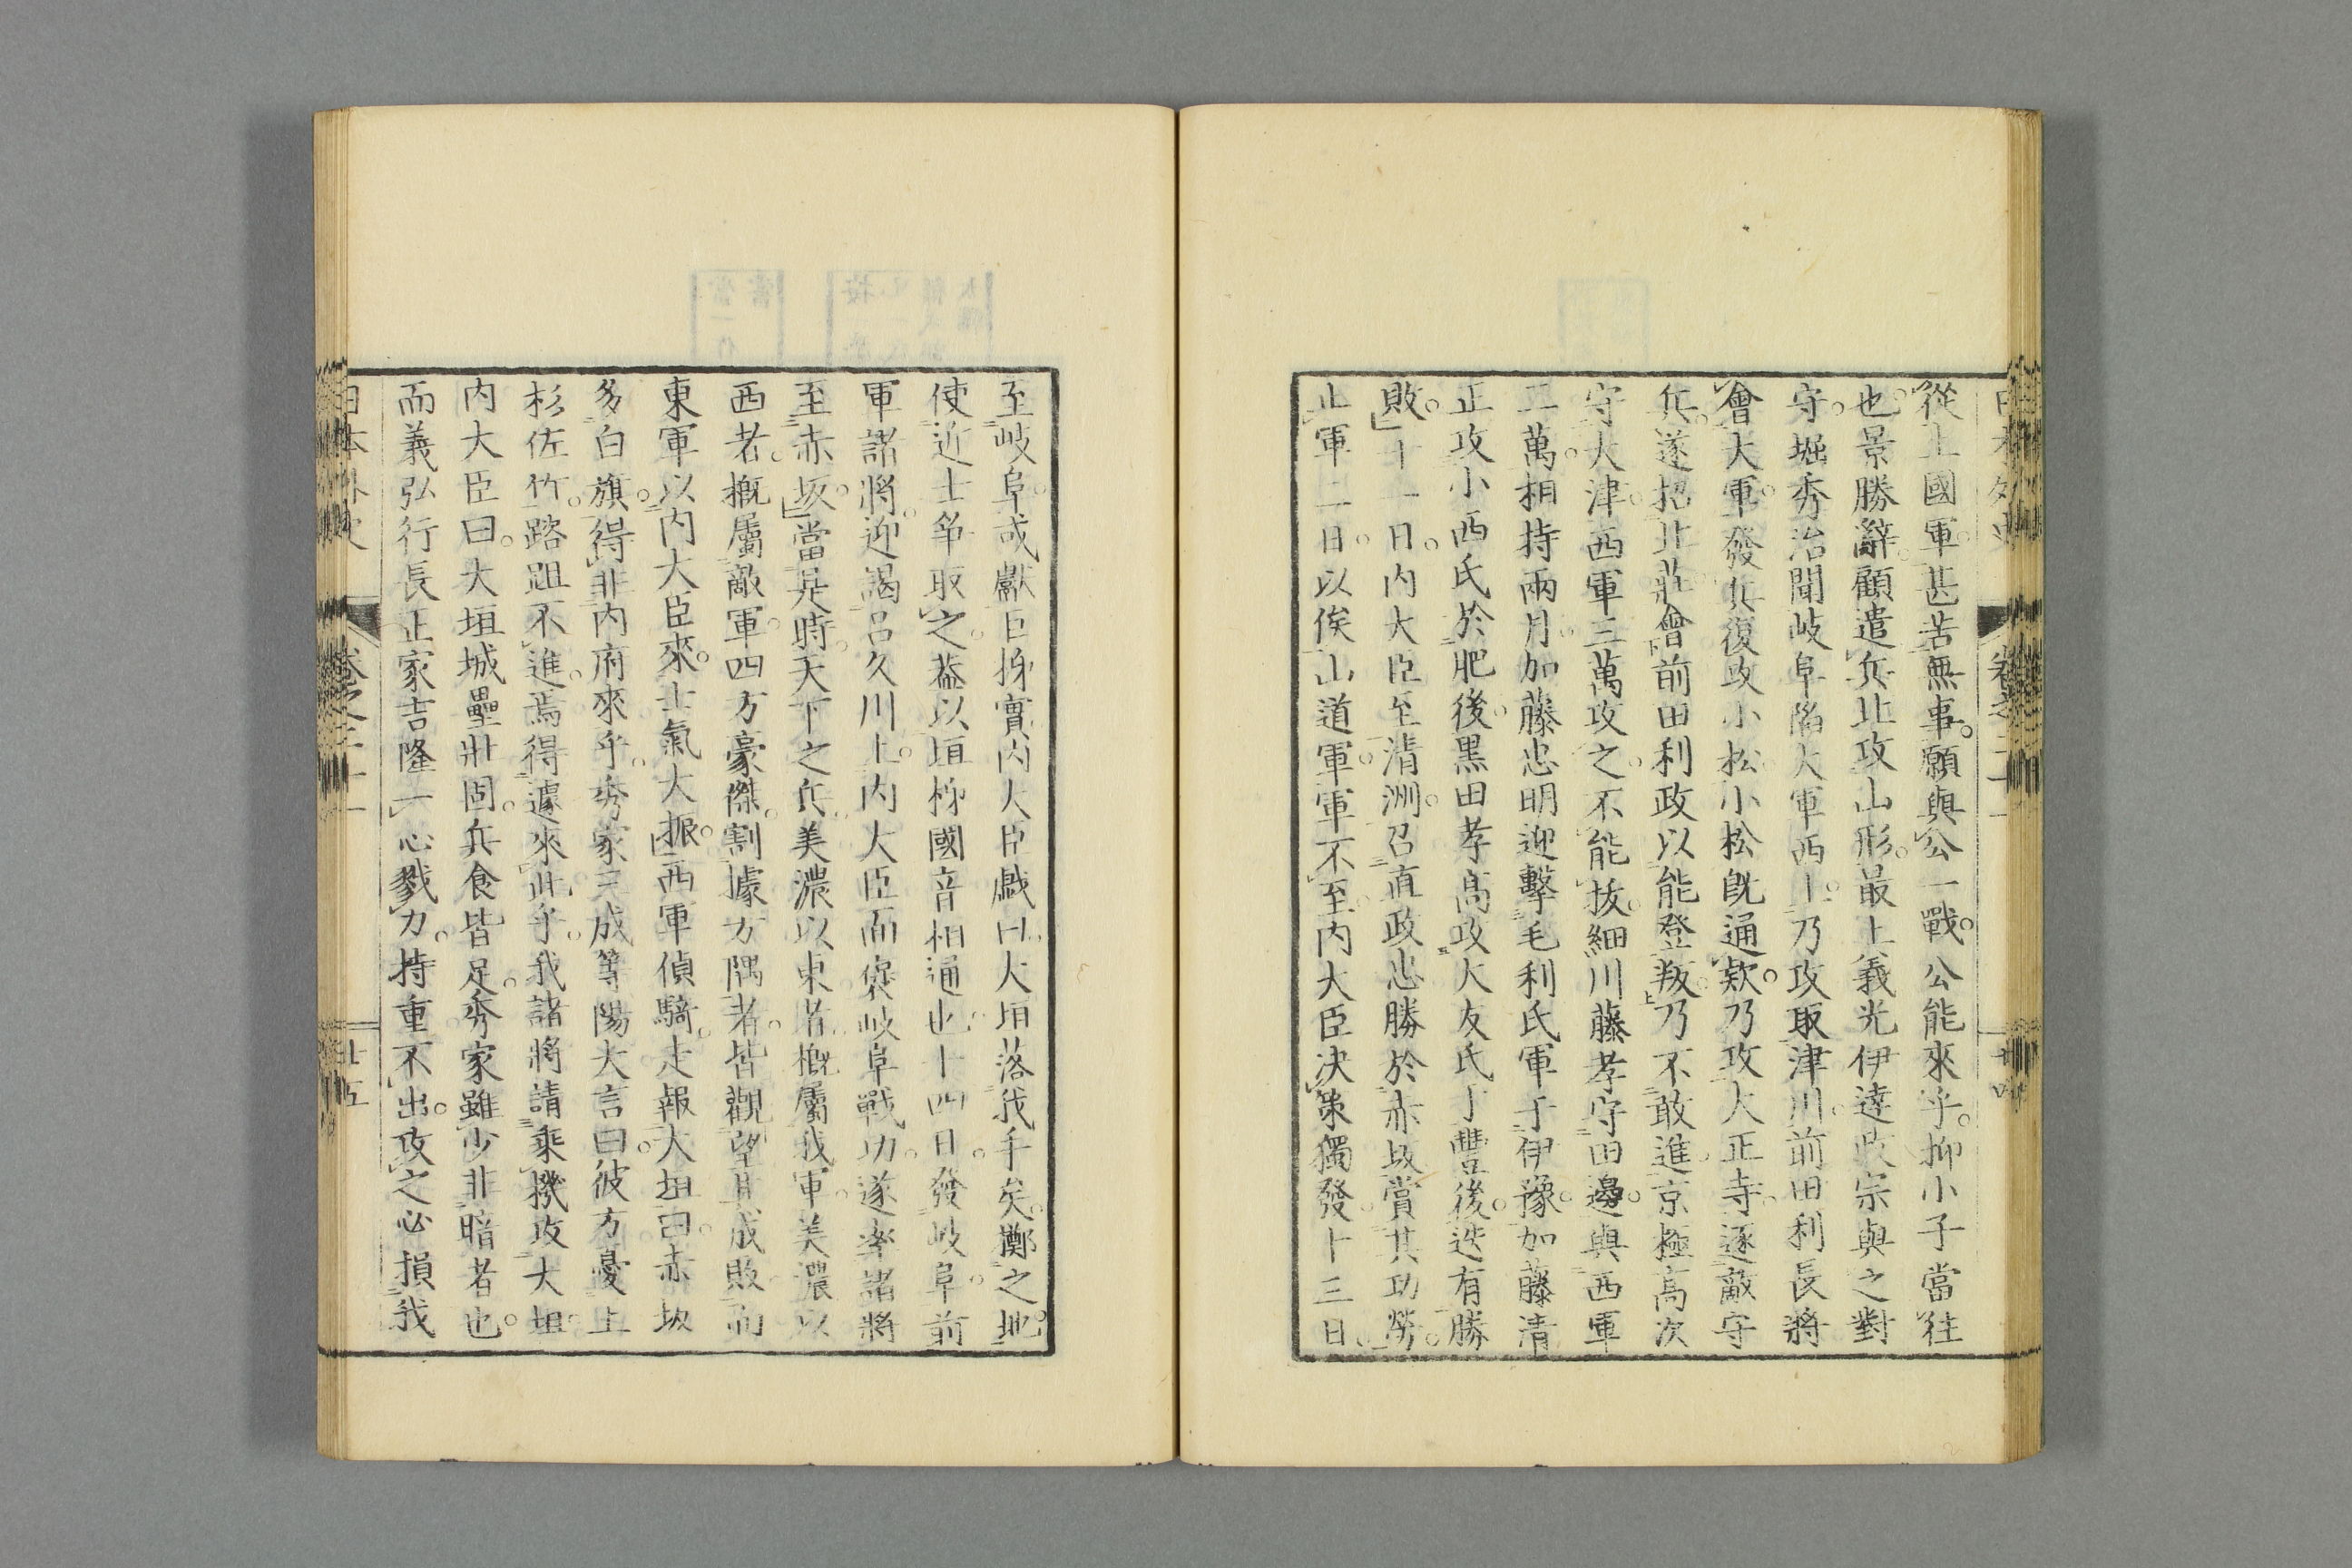 從上國軍甚苦無事願與公一戰公能來乎抑小子當往
也景勝辭顧遣兵北攻山形最上義光伊達政宗與之對
守堀秀治聞岐阜陷大軍西上乃攻取津川前田利長將
會大軍發兵復攻小松小松旣通欵乃攻大正寺逐敵守
兵遂招北莊會前田利政以能登叛乃不敢進京極高次
守大津西軍三萬攻之不能拔細川藤孝守田邊與西軍
二萬相持兩月加藤忠明迎擊毛利氏軍于伊豫加藤清
正攻小西氏於肥後黑田孝高攻大友氏于豐後迭有勝
敗十一日內大臣至清洲召直政忠勝於赤坂賞其功勞
止軍二日以俟山道軍軍不至內大臣決策獨發十三日
至岐阜或獻巨柹實內大臣戲曰大垣落我手矣擲之地
使近士爭取之蓋以垣柹國音相通也十四日發岐阜前
軍諸將迎謁呂久川上內大臣面襃岐阜戰功遂率諸將
至赤坂當是時天下之兵美濃以東者概屬我軍美濃以
西者概屬敵軍四方豪傑割據方隅者皆觀望其成敗而
東軍以內大臣來士氣大振西軍偵騎走報大垣曰赤坂
多白旗得非內府來乎秀家三成等陽大言曰彼方憂上
杉佐竹路跙不進焉得遽來此乎我諸將請乘機攻大垣
內大臣曰大垣城壘壯固兵食皆足秀家雖少非暗者也
而義弘行長正家吉隆一心戮力持重不出攻之必損我
日本外史 卷之二十一 廿五